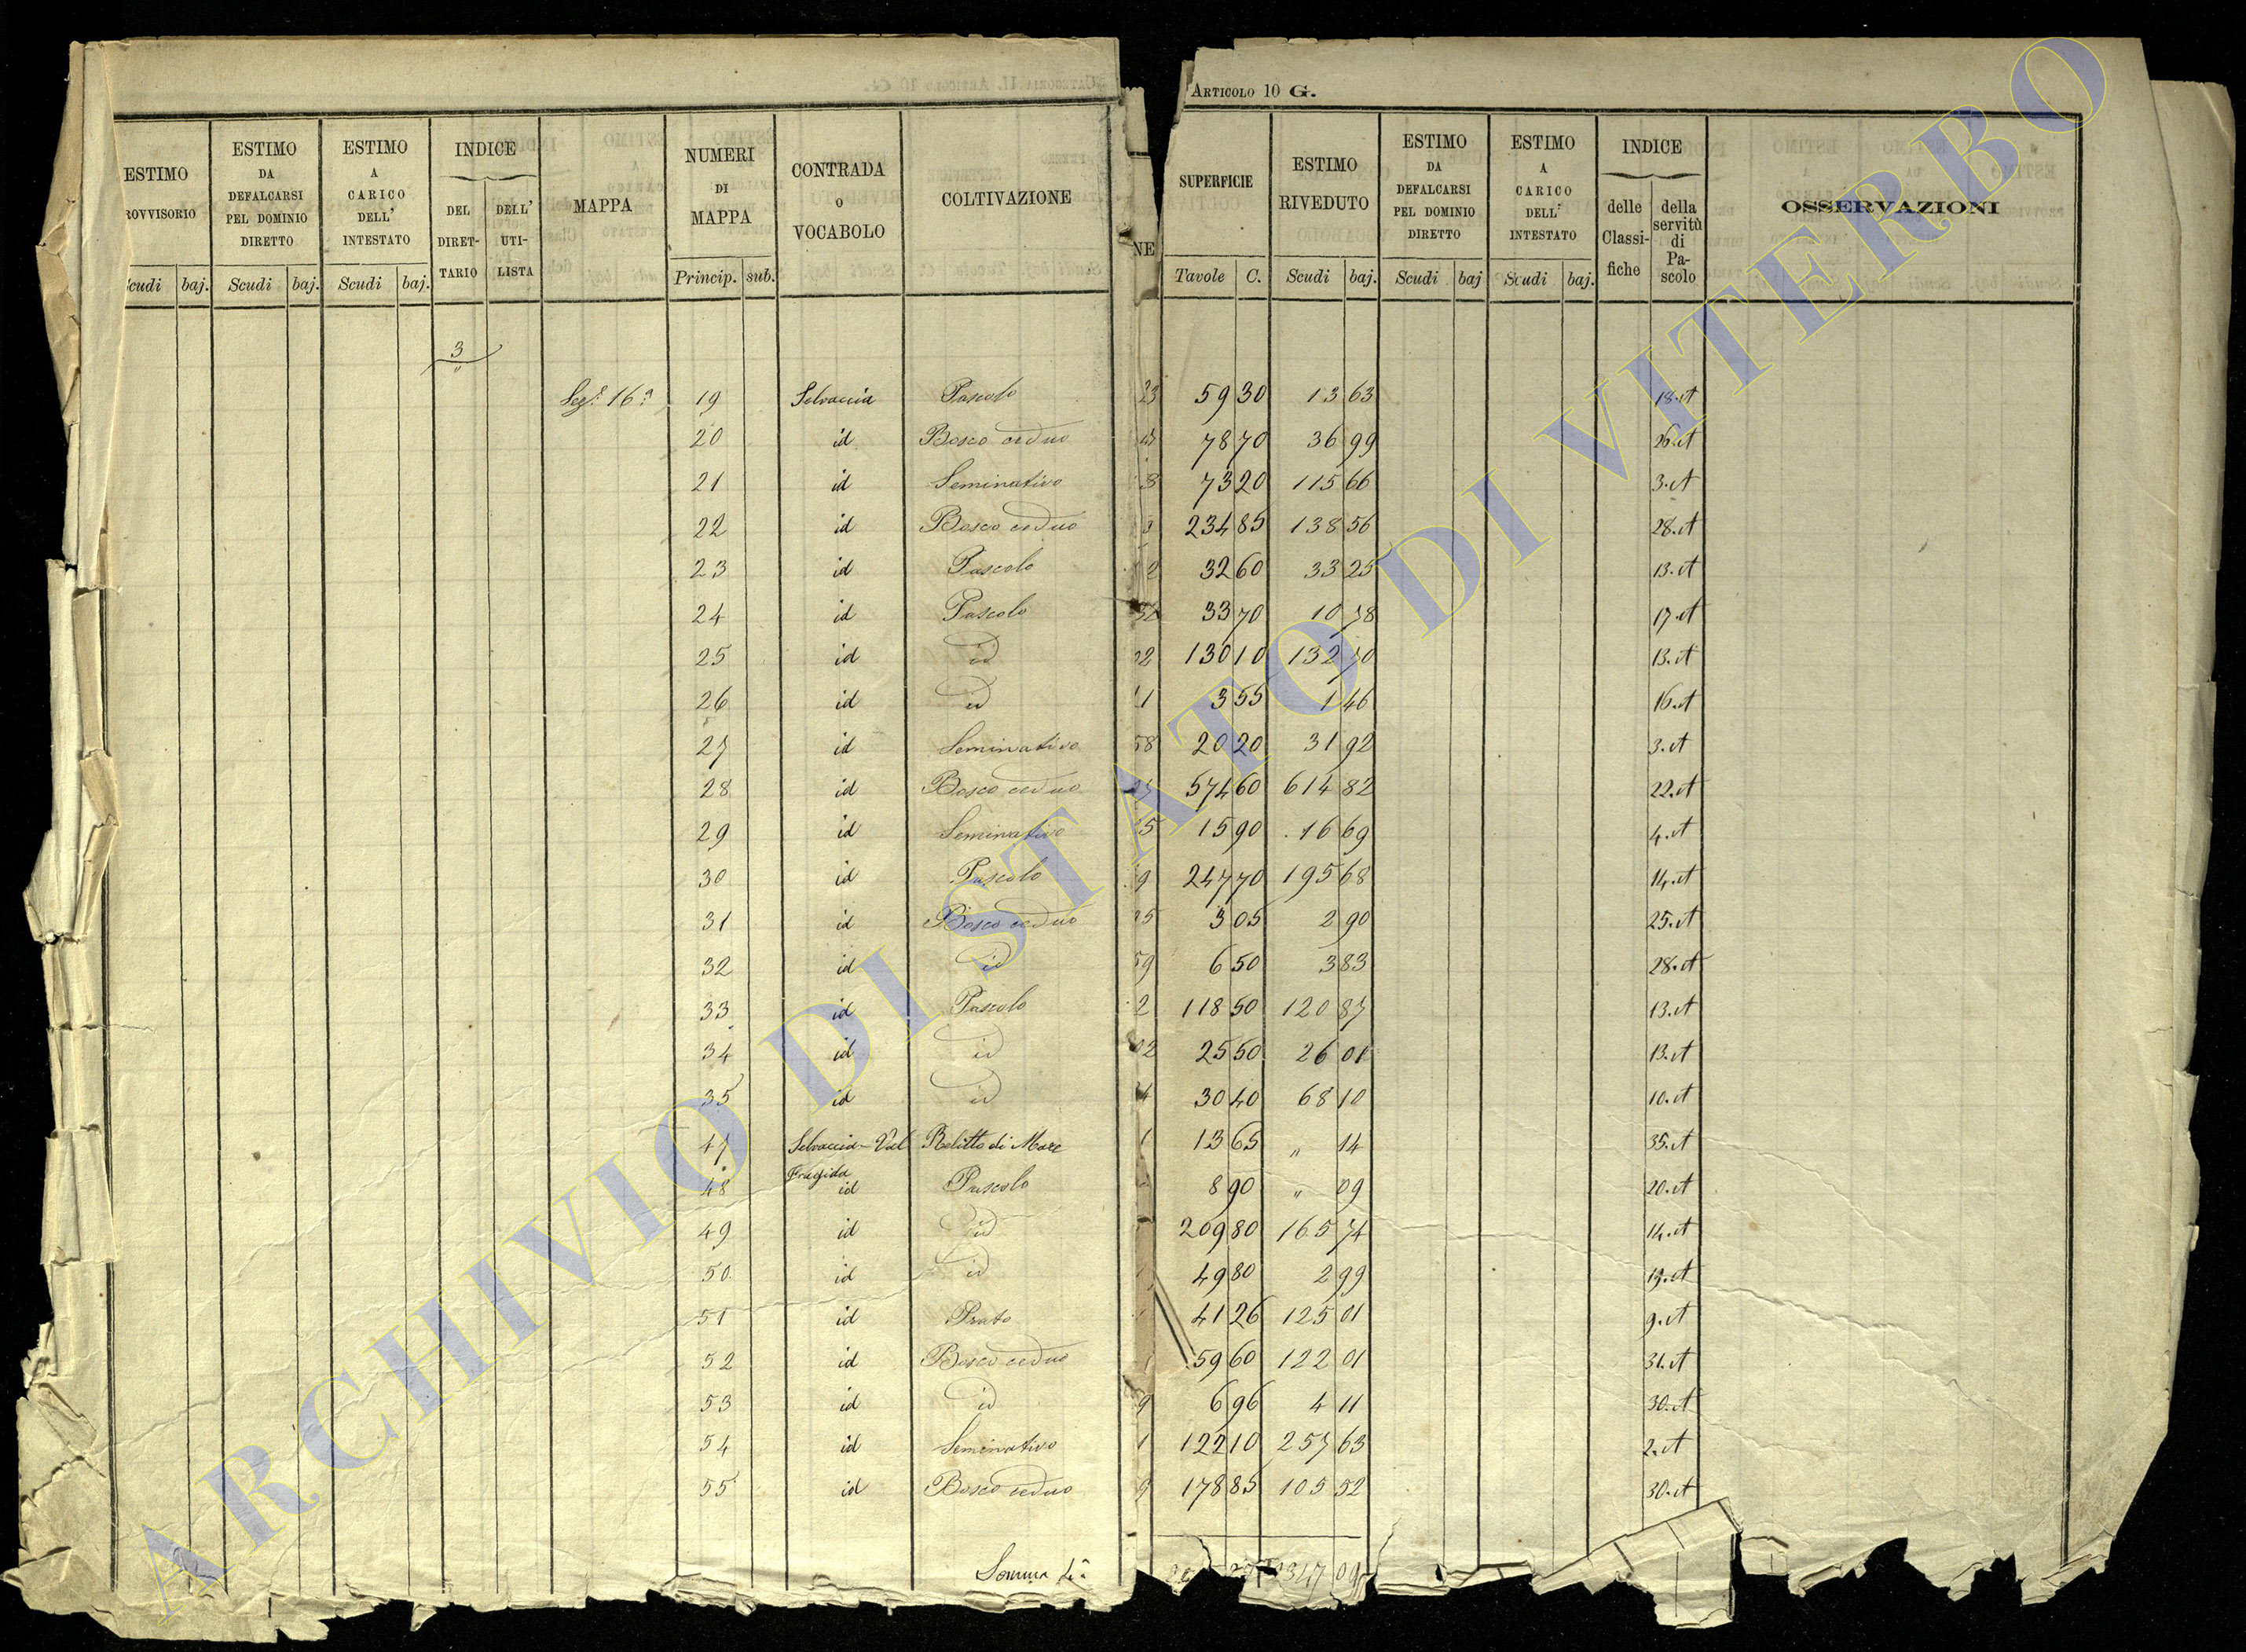 ARTICOLO 10 G.
ESTIMO
ROVVISORIO
Scudi baj.
ESTIMO
DA
DEFALCARSI
PEL DOMINIO
DIRETTO
Scudi baj.
ESTIMO
A
CARICO
DELL'
INTESTATO
Scudi baj.
INDICE
DEL
DIRET-
TARIO
DELL'
UTI-
LISTA
MAPPA
NUMERI
DI
MAPPA
Princip. sub.
CONTRADA
O
VOCABOLO
COLTIVAZIONE
NE
SUPERFICIE
Tavole C.
ESTIMO
RIVEDUTO
Scudi baj.
ESTIMO
DA
DEFALCARSI
PEL DOMINIO
DIRETTO
Scudi baj
ESTIMO
A
CARICO
DELL'
INTESTATO
Scudi baj.
INDICE
delle
Classi-
fiche
della
servitù
di
Pa-
scolo
OSSERVAZIONI
3
"
Sez.e 16.a 19 Selvaccia Pascolo 23 59 30 13 63 18.A
20 id Bosco ceduo 47 78 70 36 99 26.A
21 id Seminativo 8 73 20 115 66 3.A
22 id Bosco ceduo 234 85 138 56 28.A
23 id Pascolo 2 32 60 33 25 13.A
24 id Pascolo 32 33 70 10 78 17.A
25 id id 02 130 10 132 70 13.A
26 id id 1 3 55 1 46 16.A
27 id Seminativo 58 20 20 31 92 3.A
28 id Bosco ceduo 574 60 614 82 22.A
29 id Seminativo 5 15 90 16 69 4.A
30 id Pascolo 9 247 70 195 68 14.A
31 id Bosco ceduo 25 3 05 2 90 25.A
32 id id 59 6 50 3 83 28.A
33 id Pascolo 2 118 50 120 87 13.A
34 id id 02 25 50 26 01 13.A
35 id id 4 30 40 68 10 10.A
47 Selvaccia-Val Relitto di Mare 1 13 65 " 14 35.A
Fragida
48 id Pascolo 8 90 " 09 20.A
49 id id 209 80 165 74 14.A
50 id id 49 80 2 99 19.A
51 id Prato 41 26 125 01 9.A
52 id Bosco ceduo 59 60 122 01 31.A
53 id id 9 6 96 4 11 30.A
54 id Seminativo 1 122 10 257 63 2.A
55 id Bosco ceduo 9 178 85 105 52 30.A
Somma
ARCHIVIO DI STATO DI VITERBO